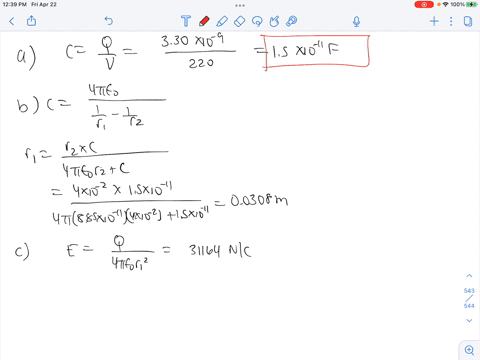 12:39 PM Fri Apr 22
100%
a) C = Q/V = 3.30 × 10⁻⁹ / 220 = 1.5 × 10⁻¹¹ F
b) C = 4πε₀ / (1/r₁ − 1/r₂)
r₁ = r₂ × C / 4πε₀r₂ + C
= 4×10⁻² × 1.5×10⁻¹¹ / 4π(8.85×10⁻¹¹)(4×10⁻²) + 1.5×10⁻¹¹ = 0.0308 m
c) E = Q / 4πε₀r₁² = 31164 N/C
543
544